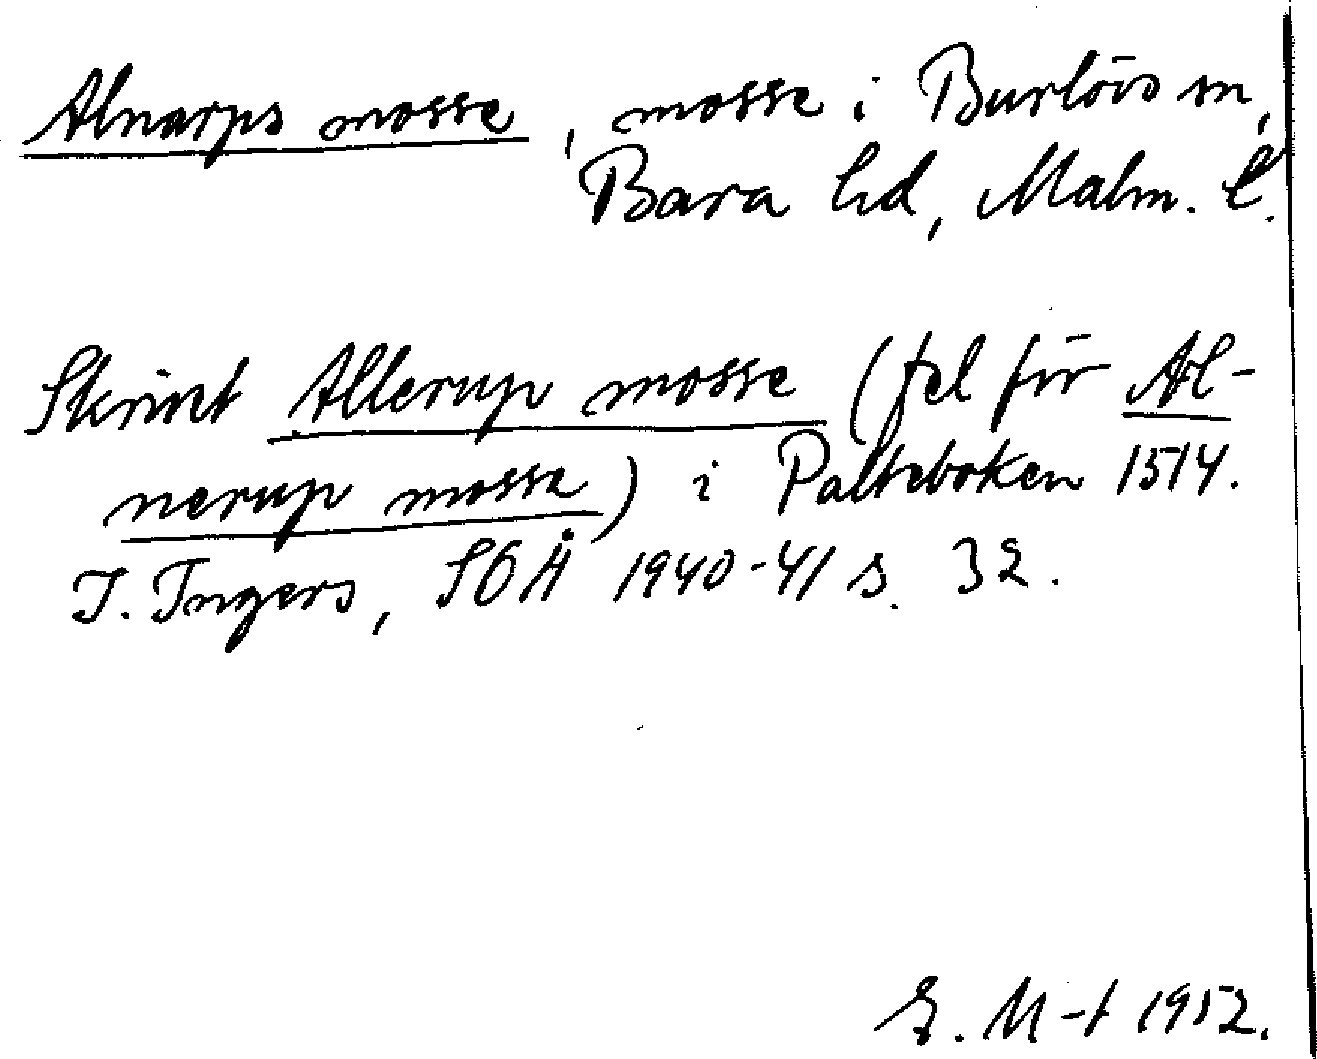 Alnarps mosse, mosse i Burlövs sn,
Bara hd, Malm. l.
Skrivet Allerup mosse (fel för Al-
nerup mosse) i Palteboken 1514.
I. Ingers, SOÅ 1940-41 s. 32.
E. M-t 1952.